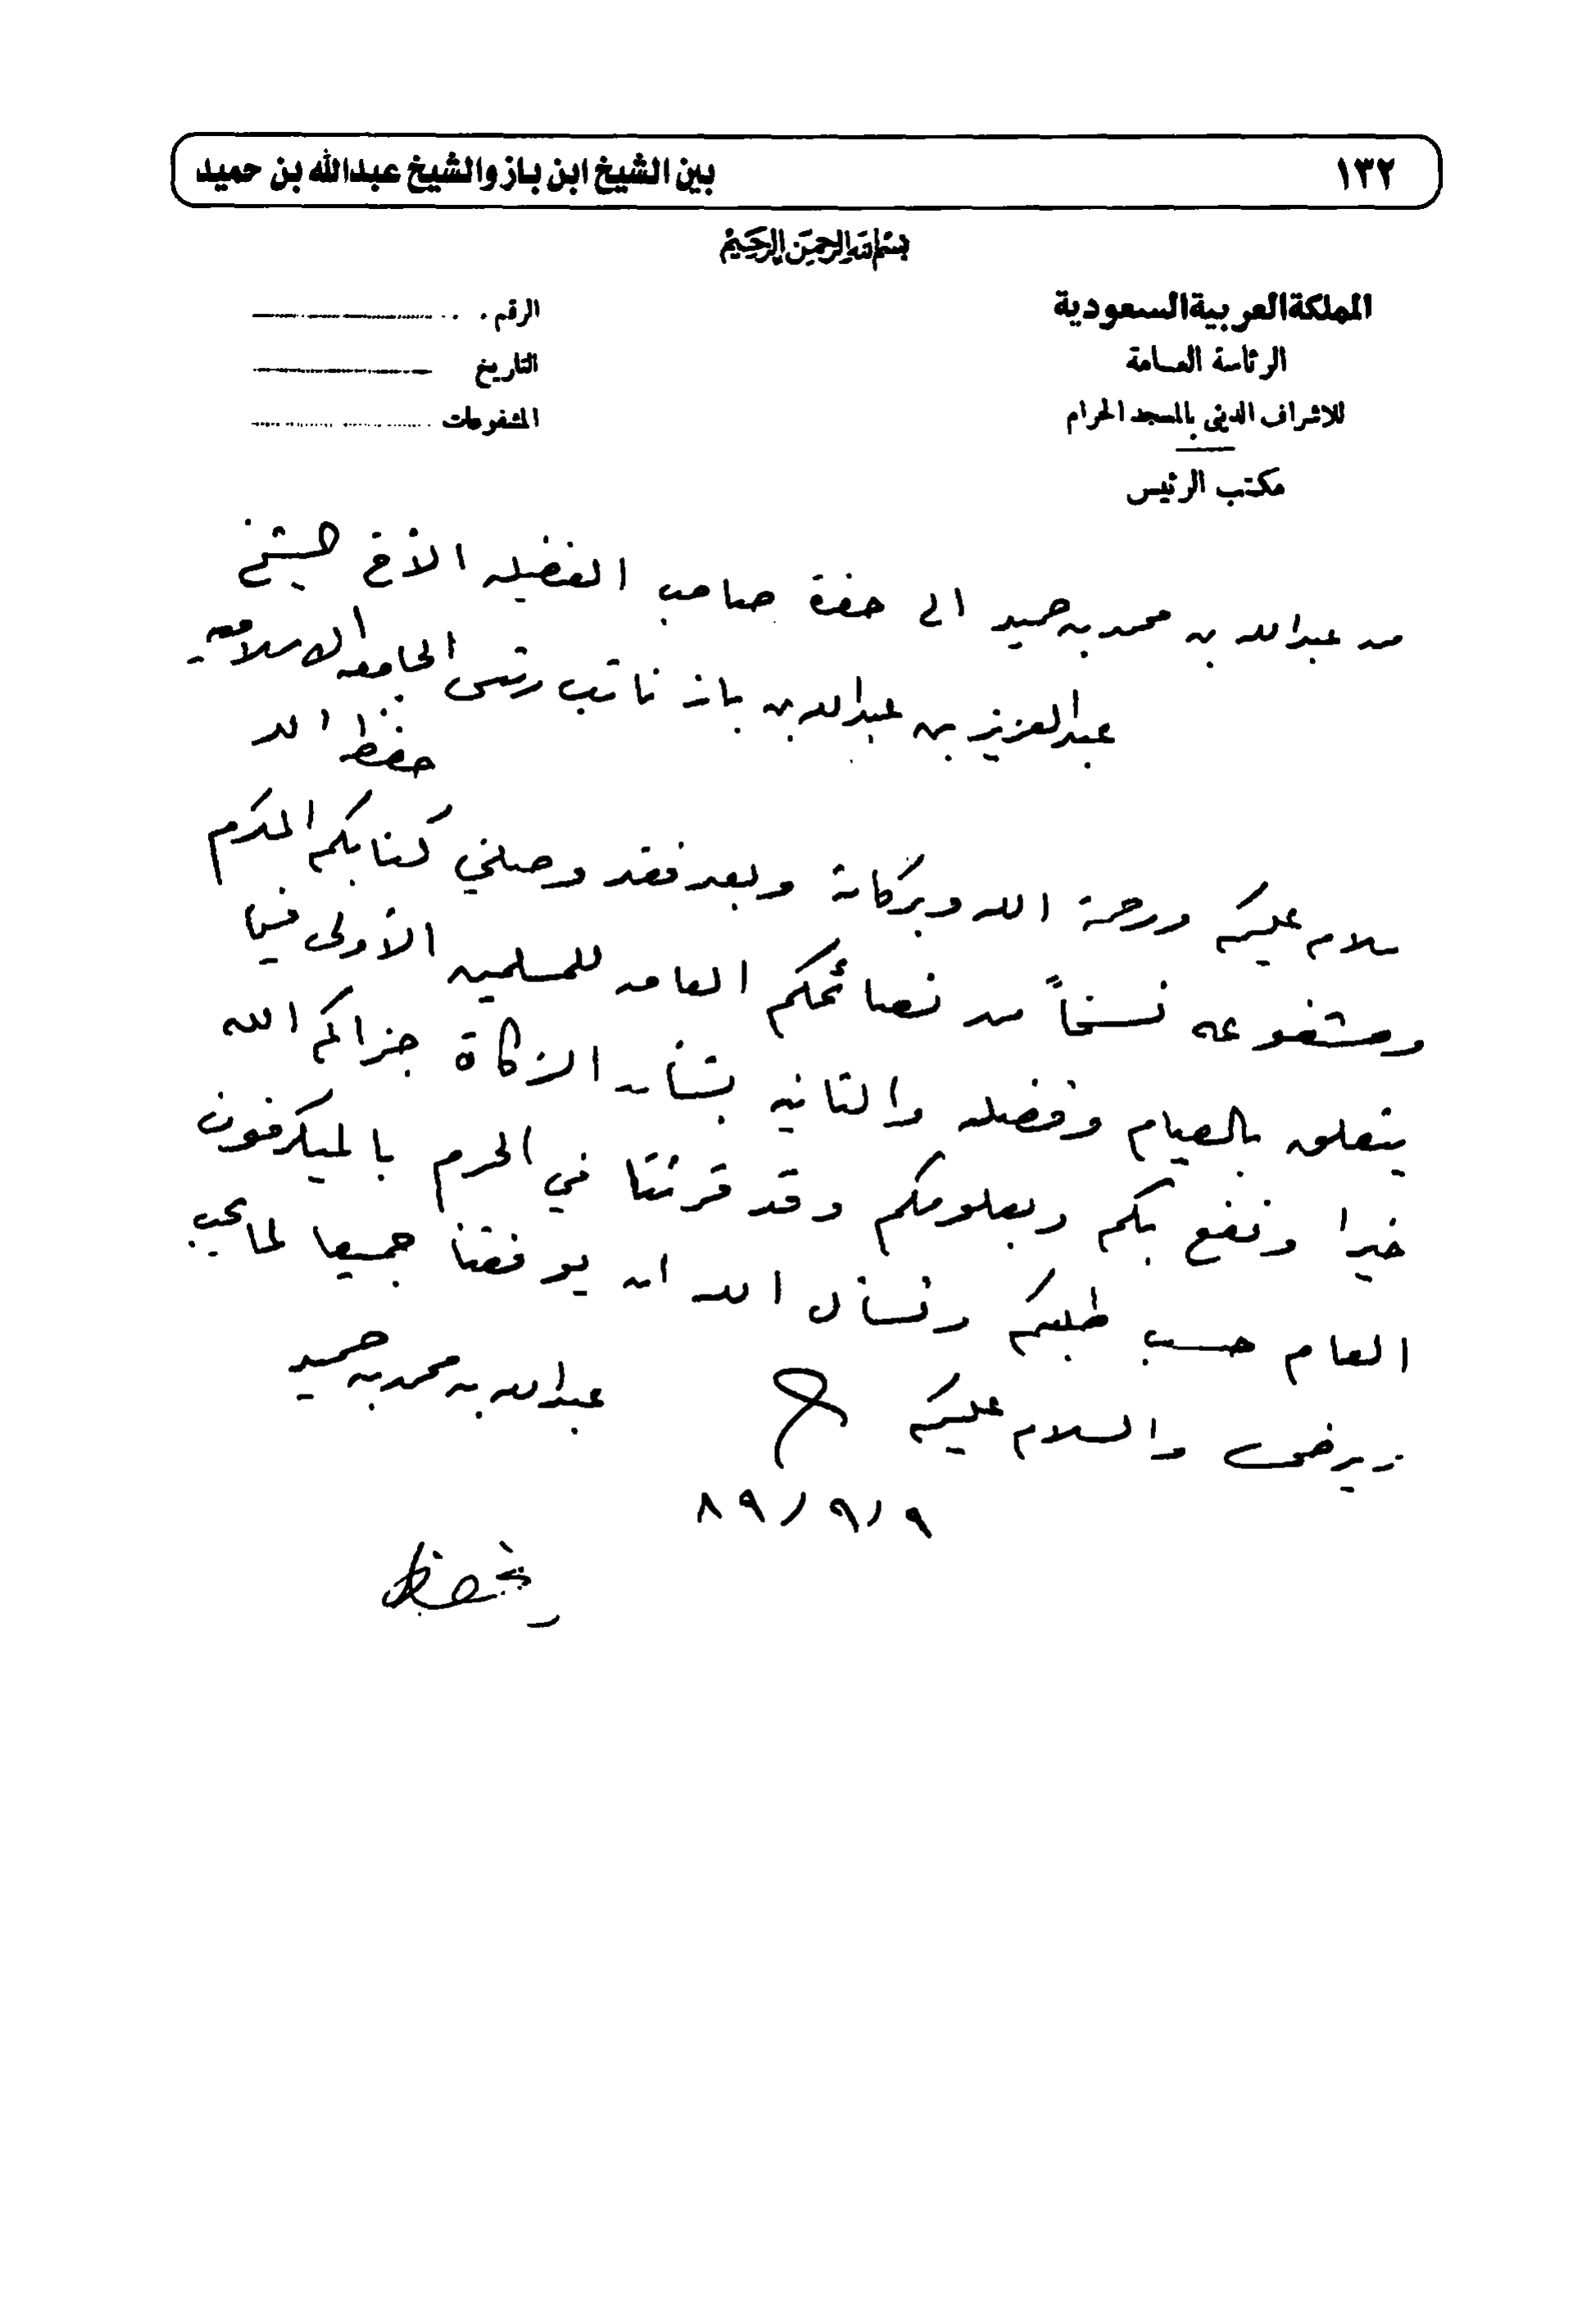 ١٣٢
بين الشيخ ابن باز والشيخ عبدالله بن حميد
بسم الله الرحمن الرحيم
المملكة العربية السعودية
الرئاسة العامة
للاشراف الديني بالمسجد الحرام
مكتب الرئيس
الرقم
التاريخ
المشفوعات
من عبدالله بن محمد بن حميد الى حضرة صاحب الفضيله الأخ الشيخ
عبدالعزيز بن عبدالله بن باز نائب رئيس الجامعه الاسلاميه
حفظه الله
سلام عليكم ورحمة الله وبركاته وبعد فقد وصلني كتابكم المكرم
ومشفوعه نسخاً من نصائحكم العامه للمسلمين الأولى فيما
يتعلق بالصيام وفضله والثانيه بشأن الزكاة جزاكم الله
خيرا ونفع بكم وبعلومكم وقد قرئتا في الحرم بالميكرفون
العام حسب طلبكم ونسأل الله ان يوفقنا جميعا لما يحب
ويرضى والسلام عليكم
عبدالله بن محمد بن حميد
٨٩/٩/٩